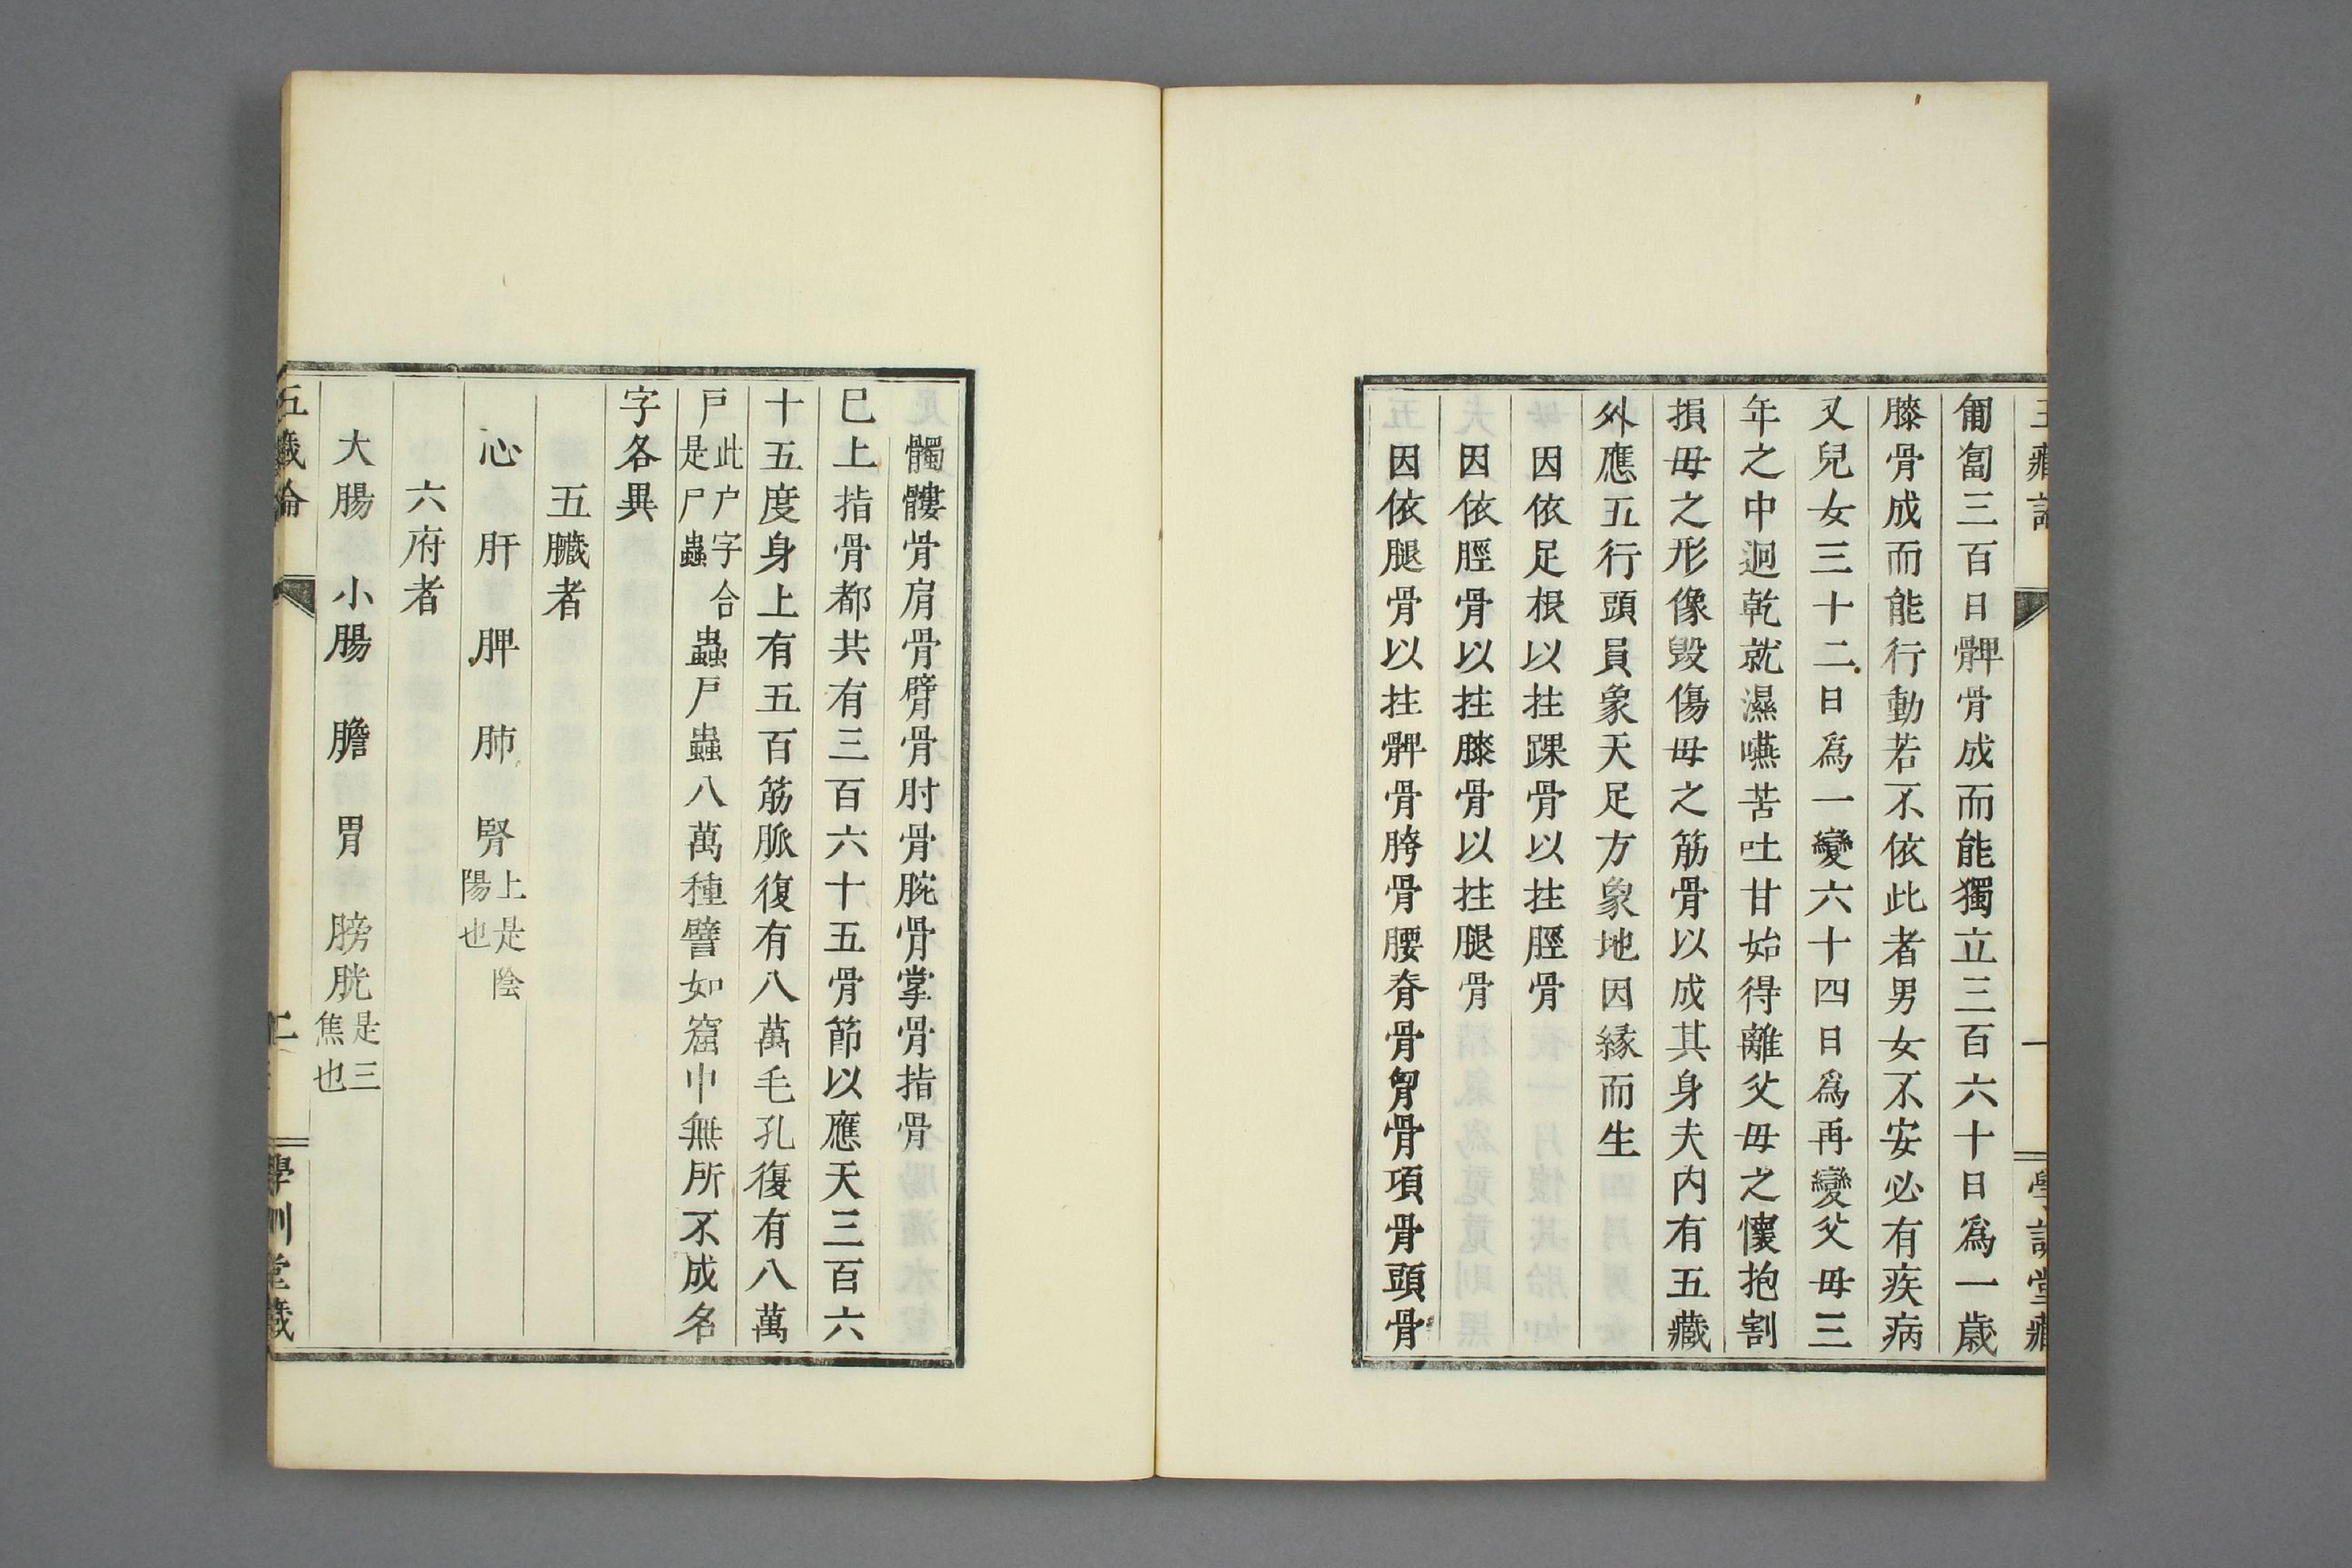 匍匐三百日髀骨成而能獨立三百六十日爲一歲
膝骨成而能行動若不依此者男女不安必有疾病
又兒女三十二日爲一變六十四日爲再變父母三
年之中迴乾就濕嚥苦吐甘始得離父母之懷抱割
損母之形像毀傷母之筋骨以成其身夫内有五藏
外應五行頭員象天足方象地因緣而生
因依足根以拄踝骨以拄脛骨
因依脛骨以拄膝骨以拄腿骨
因依腿骨以拄髀骨胯骨腰脊骨胷骨項骨頭骨
髑髏骨肩骨臂骨肘骨腕骨掌骨指骨
巳上指骨都共有三百六十五骨節以應天三百六
十五度身上有五百筋脈復有八萬毛孔復有八萬
戸此户字合是尸蟲蟲戸蟲八萬種譬如窟中無所不成名
字各異
五臟者
心 肝 脾 肺 腎上是陰陽也
六府者
大腸 小腸 膽 胃 膀胱是三焦也
五藏論 二 學訓堂藏